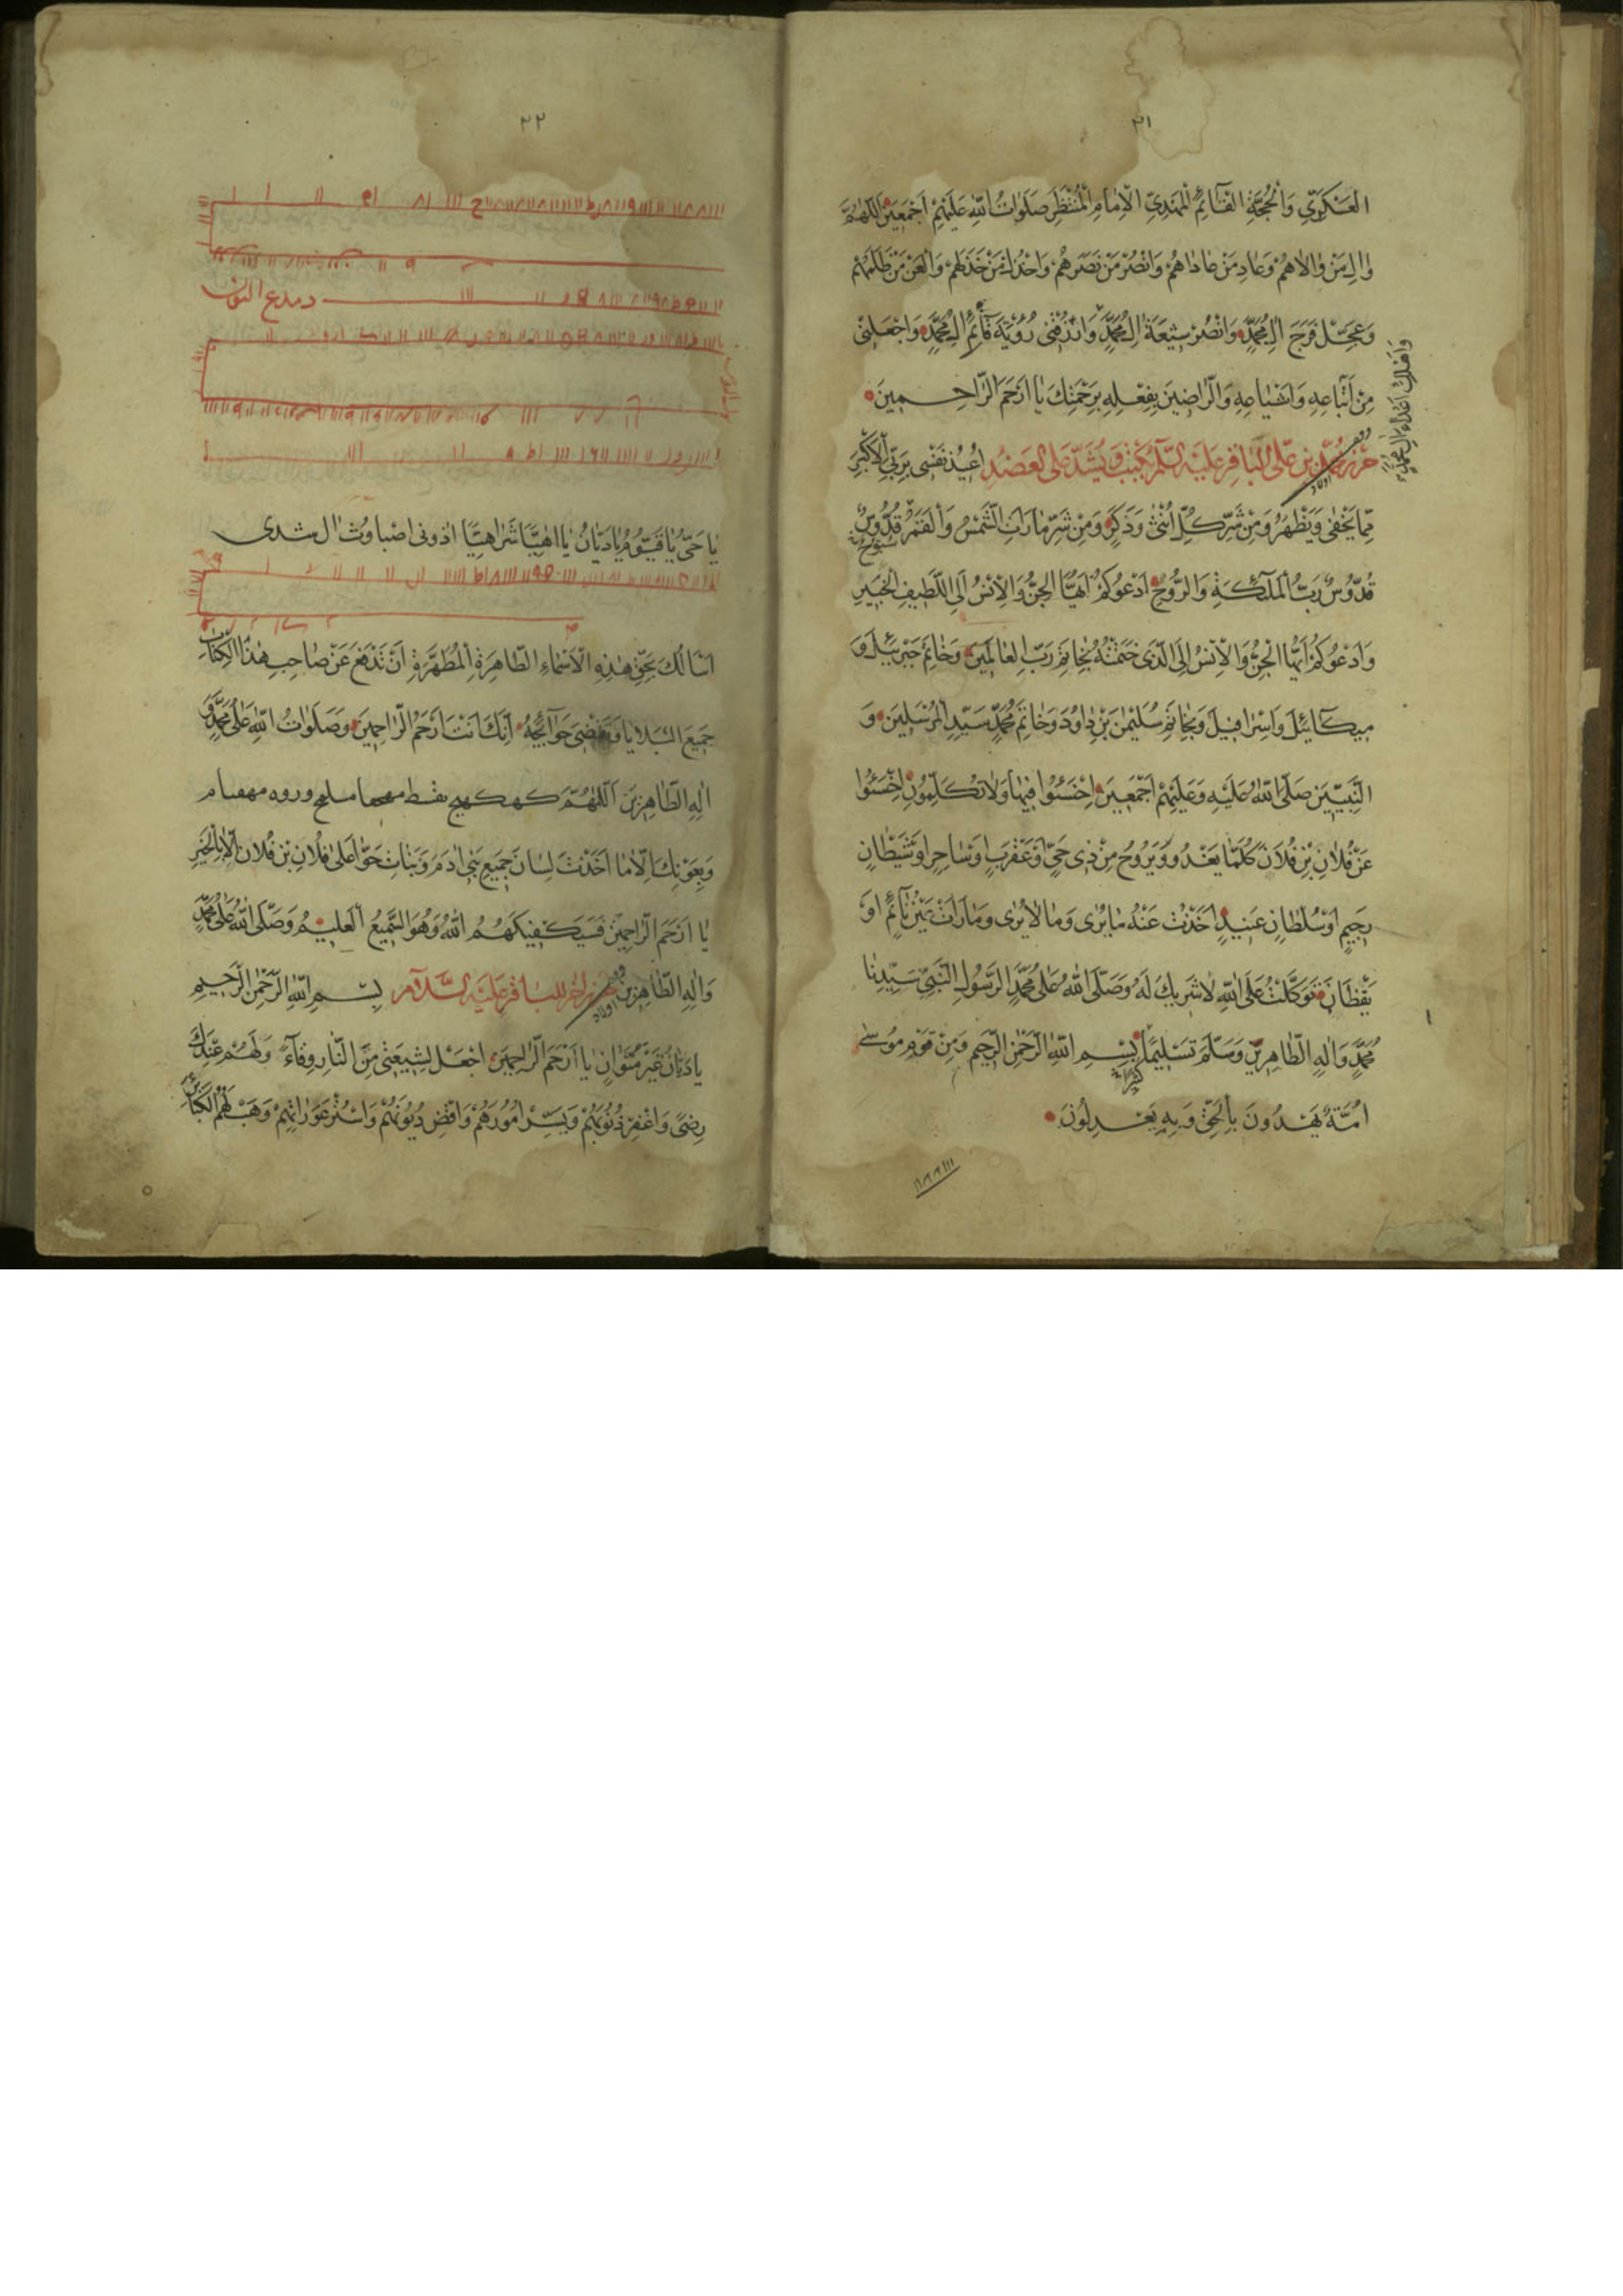 ٢١
العسكري وَالْحُجَّةِ القَآئِمِ الْمَهْدِيِّ الْاِمامِ الْمُنْتَظَرِ صَلَواتُ اللّٰهِ عَلَيْهِمْ اَجْمَعينَ اَللّٰهُمَّ
والِ مَنْ والاهُمْ وَعادِ مَنْ عاداهُمْ وَانْصُرْ مَنْ نَصَرَهُمْ وَاخْذُلْ مَنْ خَذَلَهُمْ وَالْعَنْ مَنْ ظَلَمَهُمْ
وَعَجِّلْ فَرَجَ الِ مُحَمَّدٍ وَانْصُرْ شيعَةَ الِ مُحَمَّدٍ وَارْزُقْنى رُؤْيَةَ قآئِمِ الِ مُحَمَّدٍ وَاجْعَلْنى
وَاَهْلِكْ اَعْداءَ الِ مُحَمَّدٍ
مِنْ اَتْباعِهِ وَاَشْياعِهِ وَالرّاضينَ بِفِعْلِهِ بِرَحْمَتِكَ يا اَرْحَمَ الرّاحِمينَ
حرز محمد بن على الباقر عليه السلم يكتب ويشد على العضد اُعيذُ نَفْسى بِرَبِّىَ الْاَكْبَرِ
مِمّا يَخْفى وَيَظْهَرُ وَمِنْ شَرِّ كُلِّ اُنْثى وَذَكَرٍ وَمِنْ شَرِّ ما رَاَتِ الشَّمْسُ وَالْقَمَرُ قُدُّوسٌ
قُدُّوسٌ رَبُّ الْمَلٰٓئِكَةِ وَالرُّوحِ اَدْعُوكُمْ اَيُّهَا الْجِنُّ وَالْاِنْسُ اِلَى اللَّطيفِ الْخَبيرِ
وَاَدْعُوكُمْ اَيُّهَا الْجِنُّ وَالْاِنْسُ اِلَى الَّذى خَتَمْتُهُ بِخاتِمِ رَبِّ الْعالَمينَ وَخاتِمِ جَبْرَئيلَ وَ
ميكآئيلَ وَاِسْرافيلَ وَبِخاتِمِ سُلَيْمٰنَ بْنِ داوُدَ وَخاتِمِ مُحَمَّدٍ سَيِّدِ الْمُرْسَلينَ وَ
النَّبِيّينَ صَلَّى اللّٰهُ عَلَيْهِ وَعَلَيْهِمْ اَجْمَعينَ اِخْسَئُوا فيها وَلا تُكَلِّمُونِ اِخْسَئُوا
عَنْ فُلانِ بْنِ فُلانٍ كُلَّما يَغْدُو وَيَرُوحُ مِنْ ذى حَىٍّ اَوْ عَقْرَبٍ اَوْ ساحِرٍ اَوْ شَيْطانٍ
رَجيمٍ اَوْ سُلْطانٍ عَنيدٍ اَخَذْتُ عَنْهُ ما يُرى وَما لا يُرى وَما رَاَتْ عَيْنُ نآئِمٍ اَوْ
يَقْظانَ تَوَكَّلْتُ عَلَى اللّٰهِ لا شَريكَ لَهُ وَصَلَّى اللّٰهُ عَلى مُحَمَّدٍ الرَّسُولِ النَّبِىِّ سَيِّدِنا
مُحَمَّدٍ وَالِهِ الطّاهِرينَ وَسَلَّمَ تَسْليمًا بِسْمِ اللّٰهِ الرَّحْمٰنِ الرَّحيمِ وَمِنْ قَوْمِ مُوسى
اُمَّةٌ يَهْدُونَ بِالْحَقِّ وَبِهِ يَعْدِلُونَ
٢٢
يا حَىُّ يا قَيُّومُ يا دَيّانُ يا اِهْيًّا شَراهِيًّا اذونى اصباوث ال شدى
اَسْاَلُكَ بِحَقِّ هٰذِهِ الْاَسْماءِ الطّاهِرَةِ الْمُطَهَّرَةِ اَنْ تَدْفَعَ عَنْ صاحِبِ هٰذَا الْكِتابِ
جَميعَ الْبَلايا وَتَقْضِىَ حَوآئِجَهُ اِنَّكَ اَنْتَ اَرْحَمُ الرّاحِمينَ وَصَلَواتُ اللّٰهِ عَلى مُحَمَّدٍ وَ
الِهِ الطّاهِرينَ اَللّٰهُمَّ كهكهيج بفسط مهما مسلع وروه مهفتام
وَبِعَوْنِكَ اِلّا ما اَخَذْتَ لِسانَ جَميعِ بَنى ادَمَ وَبَناتِ حَوّا عَلى فُلانِ بْنِ فُلانٍ اِلّا بِالْخَيْرِ
يا اَرْحَمَ الرّاحِمينَ فَسَيَكْفيكَهُمُ اللّٰهُ وَهُوَ السَّميعُ الْعَليمُ وَصَلَّى اللّٰهُ عَلى مُحَمَّدٍ
وَالِهِ الطّاهِرينَ حرز اخر للباقر عليه السلام بِسْمِ اللّٰهِ الرَّحْمٰنِ الرَّحيمِ
يا دَيّانُ غَيْرَ مُتَوانٍ يا اَرْحَمَ الرّاحِمينَ اجْعَلْ لِشيعَتى مِنَ النّارِ وِقآءً وَلَهُمْ عِنْدَكَ
رِضىً وَاغْفِرْ ذُنُوبَهُمْ وَيَسِّرْ اُمُورَهُمْ وَاقْضِ دُيُونَهُمْ وَاسْتُرْ عَوْراتِهِمْ وَهَبْ لَهُمُ الْكَبآئِرَ